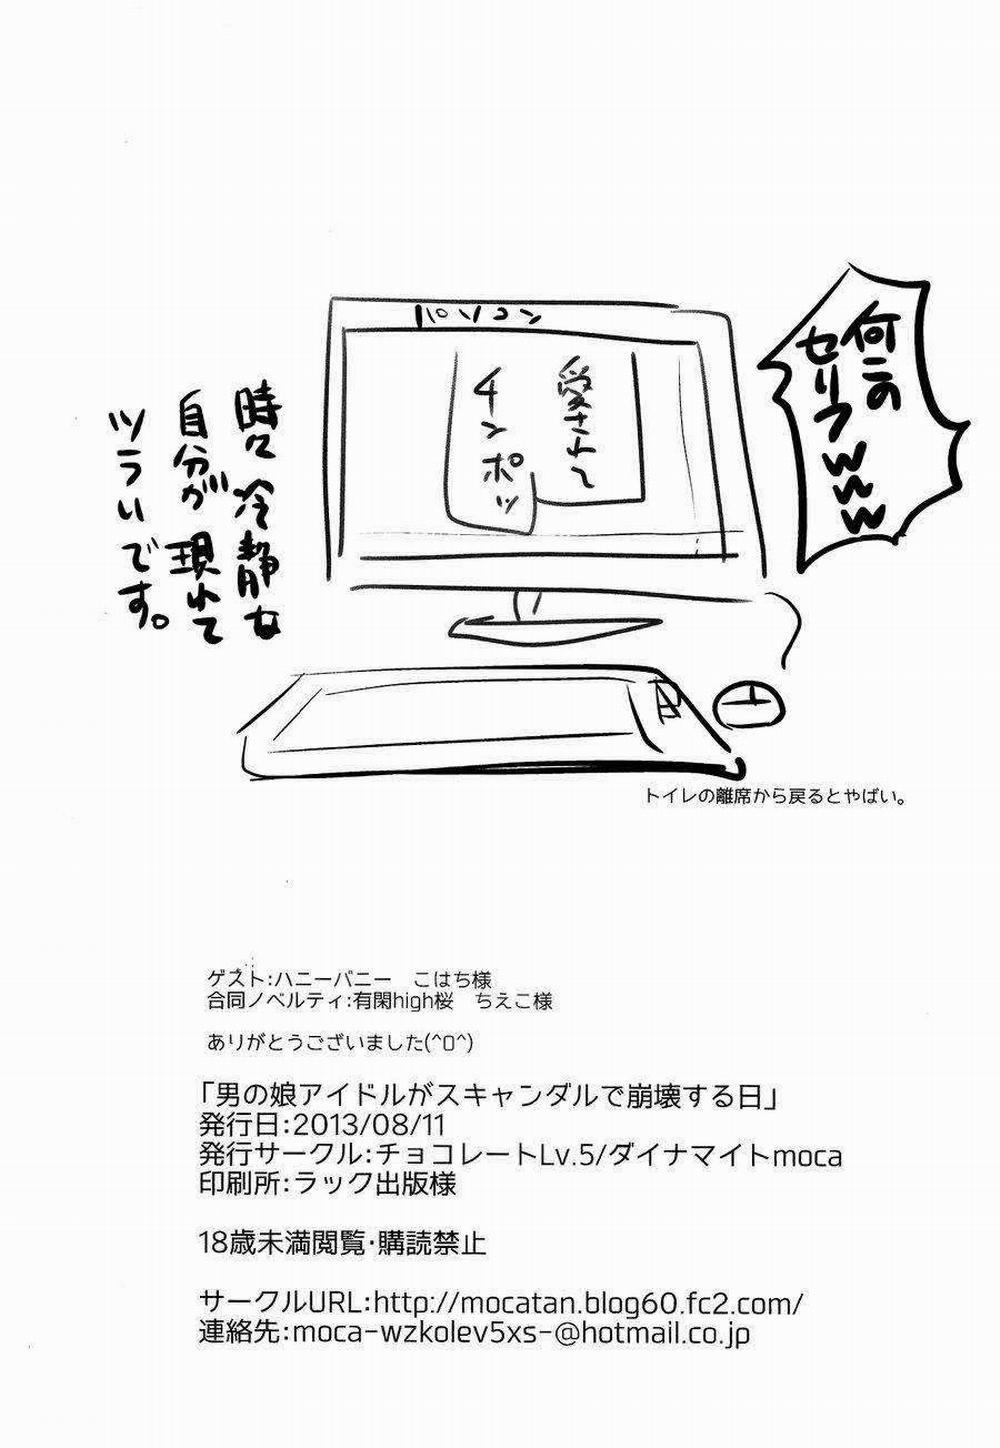 何この
セリフwww
パソコン
愛されて
チンポッ
時々冷静な
自分が現れて
ツラいです。
トイレの離席から戻るとやばい。
ゲスト:ハニーバニー　こはち様
合同ノベルティ:有閑high桜　ちえこ様
ありがとうございました(^0^)
「男の娘アイドルがスキャンダルで崩壊する日」
発行日:2013/08/11
発行サークル:チョコレートLv.5/ダイナマイトmoca
印刷所:ラック出版様
18歳未満閲覧･購読禁止
サークルURL:http://mocatan.blog60.fc2.com/
連絡先:moca-wzkolev5xs-@hotmail.co.jp